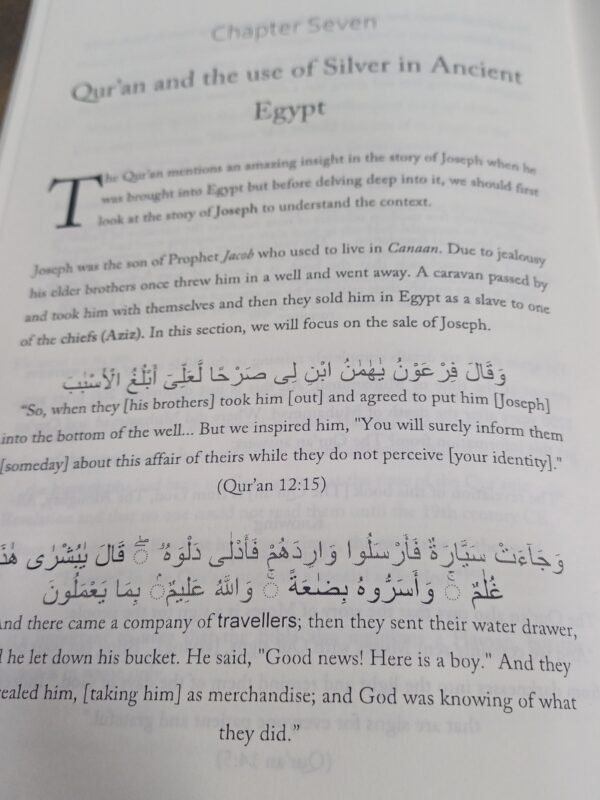 Chapter Seven
Qur'an and the use of Silver in Ancient
Egypt
The Qur'an mentions an amazing insight in the story of Joseph when he
was brought into Egypt but before delving deep into it, we should first
look at the story of Joseph to understand the context.
Joseph was the son of Prophet Jacob who used to live in Canaan. Due to jealousy
his elder brothers once threw him in a well and went away. A caravan passed by
and took him with themselves and then they sold him in Egypt as a slave to one
of the chiefs (Aziz). In this section, we will focus on the sale of Joseph.
وَقَالَ فِرْعَوْنُ يٰهَٰمَٰنُ ابْنِ لِى صَرْحًا لَّعَلِّىٓ أَبْلُغُ الْأَسْبَٰبَ
"So, when they [his brothers] took him [out] and agreed to put him [Joseph]
into the bottom of the well... But we inspired him, "You will surely inform them
[someday] about this affair of theirs while they do not perceive [your identity]."
(Qur'an 12:15)
وَجَآءَتْ سَيَّارَةٌ فَأَرْسَلُوا وَارِدَهُمْ فَأَدْلٰى دَلْوَهُۥ ۖ قَالَ يٰبُشْرٰى هٰذَا
غُلٰمٌ ۚ وَأَسَرُّوهُ بِضٰعَةً ۚ وَاللّٰهُ عَلِيمٌۢ بِمَا يَعْمَلُونَ
nd there came a company of travellers; then they sent their water drawer,
he let down his bucket. He said, "Good news! Here is a boy." And they
ealed him, [taking him] as merchandise; and God was knowing of what
they did."